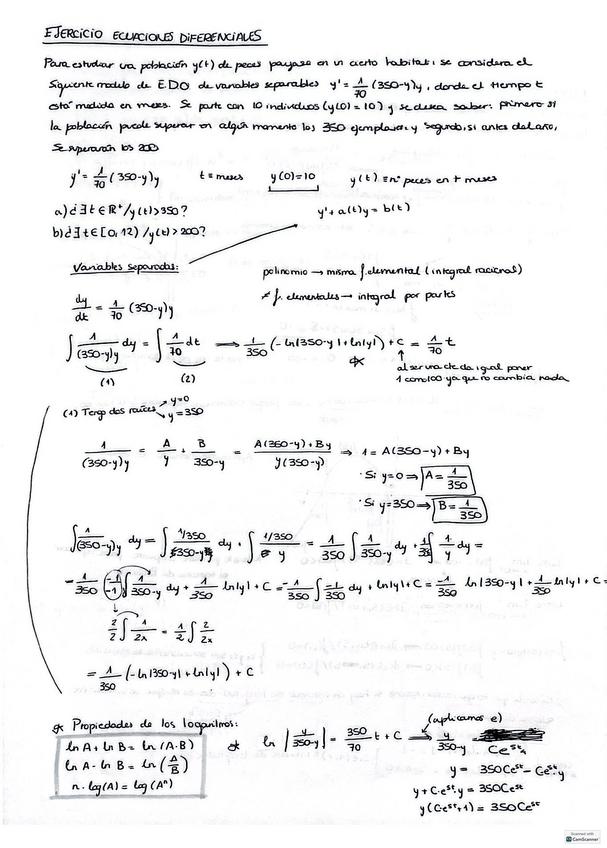 EJERCICIO ECUACIONES DIFERENCIALES
Para estudiar una población y(t) de peces payaso en un cierto habitat, se considera el
siguiente modelo de E.D.O de variables separables y' = 1/70 (350-y)y, donde el tiempo t
está medido en meses. Se parte con 10 individuos (y(0)=10) y se desea saber: primero si
la población puede superar en algún momento los 350 ejemplares y segundo, si antes del año,
se superarán los 200
y' = 1/70 (350-y)y t = meses y(0)=10 y(t) ≡ nº peces en t meses
a) ¿∃ t ∈ ℝ⁺ / y(t)>350?
y' + a(t)y = b(t)
b) ¿∃ t ∈ [0,12) / y(t)>200?
Variables separadas:
polinomio → misma f. elemental (integral racional)
≠ f. elementales → integral por partes
dy/dt = 1/70 (350-y)y
∫ 1/((350-y)y) dy = ∫ 1/70 dt ⟹ 1/350 (-ln|350-y| + ln|y|) + C = 1/70 t
(1) (2)
al ser una cte da igual poner
1 como 100 ya que no cambia nada
(1) Tengo dos raíces y=0
y=350
1/((350-y)y) = A/y + B/(350-y) = (A(350-y)+By)/(y(350-y)) ⇒ 1 = A(350-y)+By
· Si y=0 ⇒ A = 1/350
· Si y=350 ⇒ B = 1/350
∫ 1/((350-y)y) dy = ∫ (1/350)/(350-y) dy + ∫ (1/350)/y dy = 1/350 ∫ 1/(350-y) dy + 1/350 ∫ 1/y dy =
= 1/350 (-1/-1) ∫ 1/(350-y) dy + 1/350 ln|y| + C = -1/350 ∫ -1/350 dy + ln|y| + C = -1/350 ln|350-y| + 1/350 ln|y| + C =
2/2 ∫ 1/2x = 1/2 ∫ 2/2x
= 1/350 (-ln|350-y| + ln|y|) + C
* Propiedades de los logaritmos:
ln A + ln B = ln (A·B)
ln A - ln B = ln (A/B)
n·log(A) = log(Aⁿ)
* ln |y/(350-y)| = 350/70 t + C (aplicamos e) ⟹ y/(350-y) = Ce^5t
y = 350Ce^5t - Ce^5t·y
y + C·e^5t·y = 350Ce^5t
y(C·e^5t+1) = 350Ce^5t
Scanned with
CamScanner